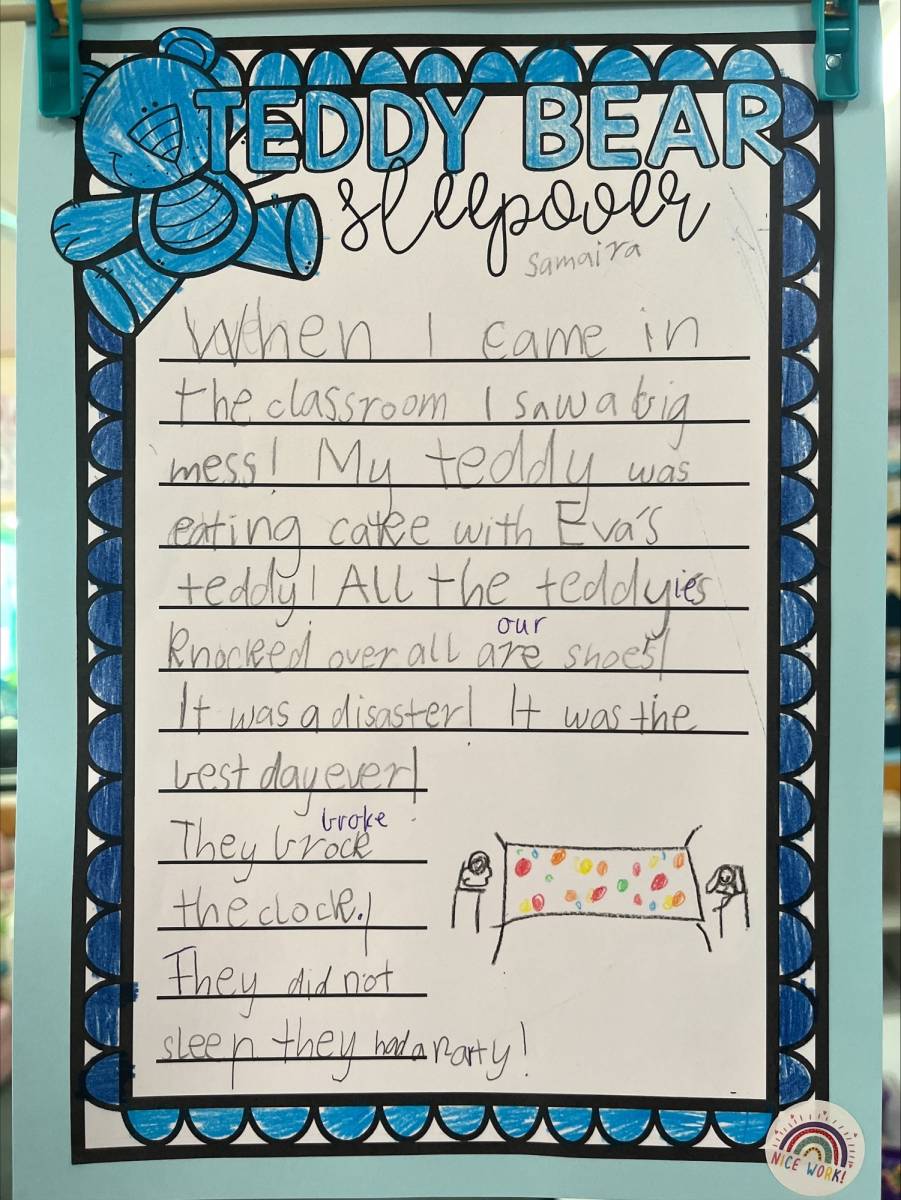 TEDDY BEAR
sleepover
Samaira
When I came in
the classroom I saw a big
mess! My teddy was
eating cake with Eva's
teddy! All the teddyies
our
knocked over all are shoes!
It was a disaster! It was the
best day ever!
broke
They brock
the clock.!
They did not
sleep they had a party!
NICE WORK!